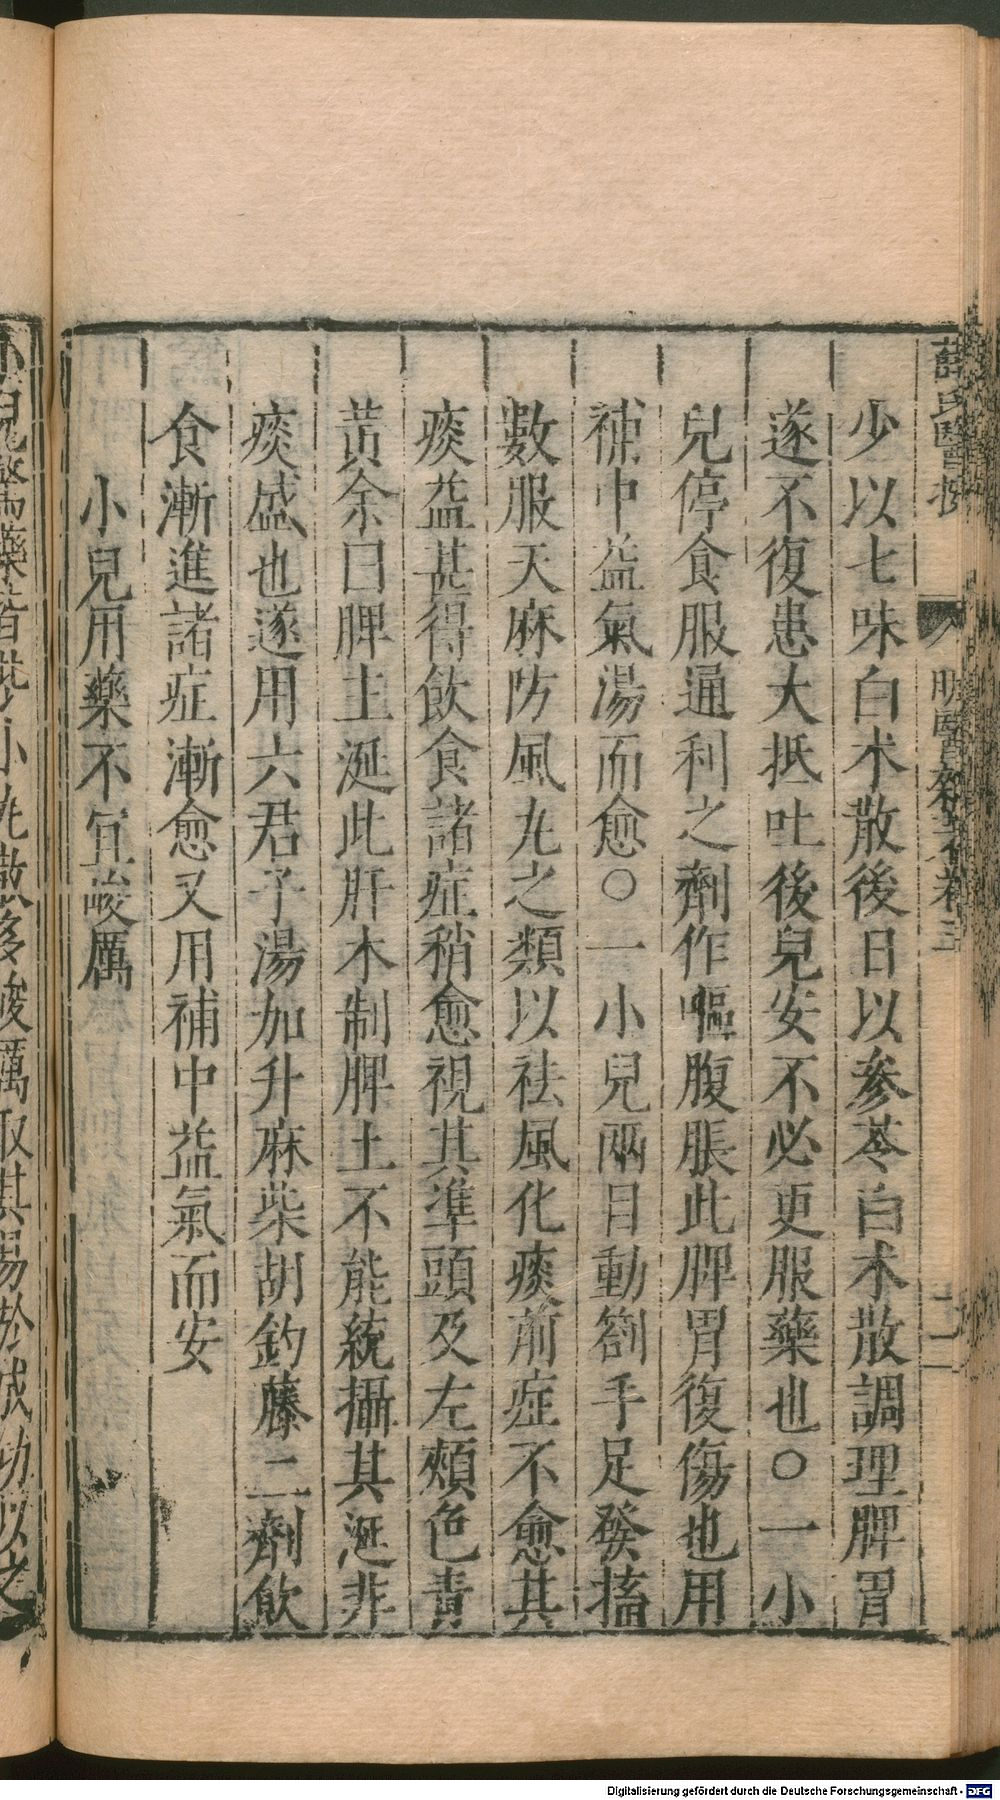 薛氏醫按 明醫雜著卷三 二一
少以七味白朮散後日以參苓白朮散調理脾胃
遂不復患大抵吐後兒安不必更服藥也○一小
兒停食服通利之劑作嘔腹脹此脾胃復傷也用
補中益氣湯而愈○一小兒兩目動劄手足發搐
數服天麻防風丸之類以祛風化痰前症不愈其
痰益甚得飲食諸症稍愈視其準頭及左頰色青
黃余曰脾主涎此肝木制脾土不能統攝其涎非
痰盛也遂用六君子湯加升麻柴胡釣藤二劑飲
食漸進諸症漸愈又用補中益氣而安
小兒用藥不宜峻厲
小兒驚藥皆
小丸散多峻厲取其易於成功以之
Digitalisierung gefördert durch die Deutsche Forschungsgemeinschaft - DFG